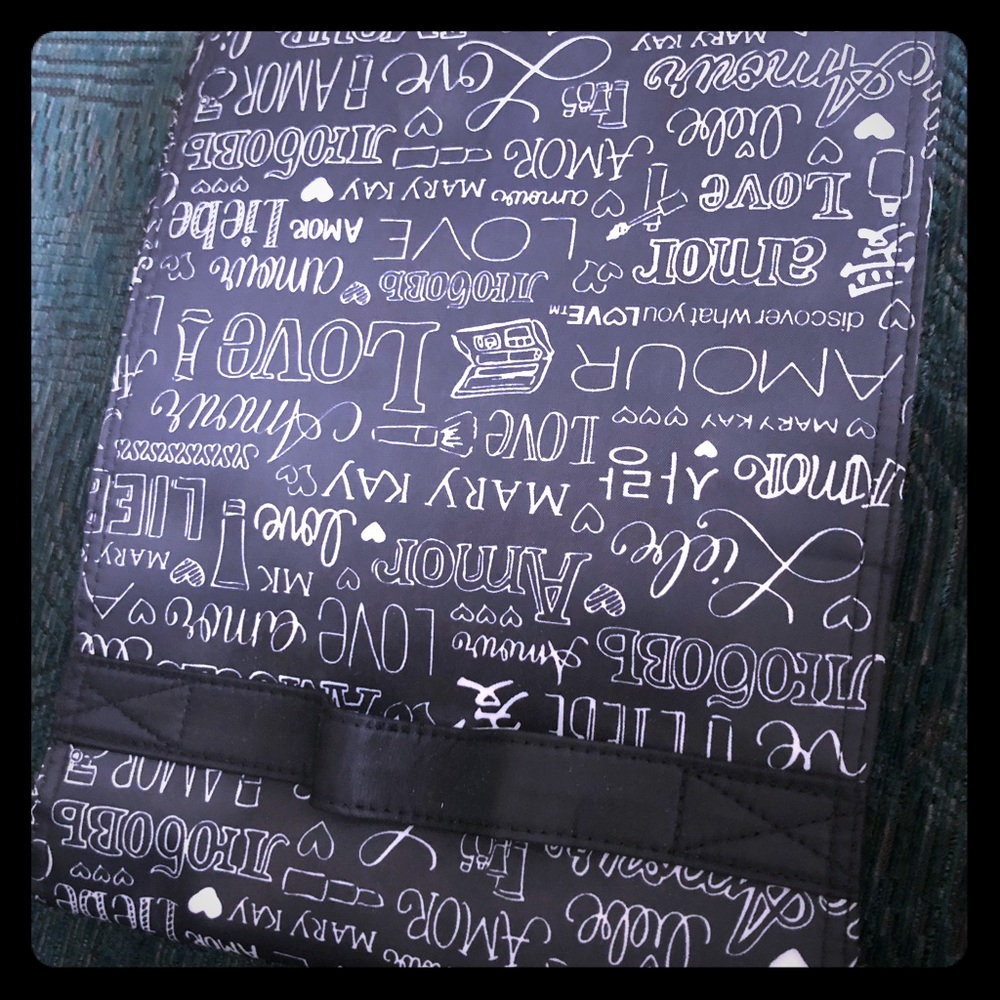 liebe AMOR
MARY KAY AMOR Liebe
Любовь
AMOR
Любовь Amour LOVE LOVE amor
Liebe Amor MK MARY
love
Amor 사랑 MARY KAY
MARY KAY LOVE Amour
AMOUR LOVE
discover what you LOVE™
amor Любовь amour
LOVE AMOR Liebe
LOVE amour MARY KAY
liebe AMOR Любовь
Amour Love AMOR
MARY KAY